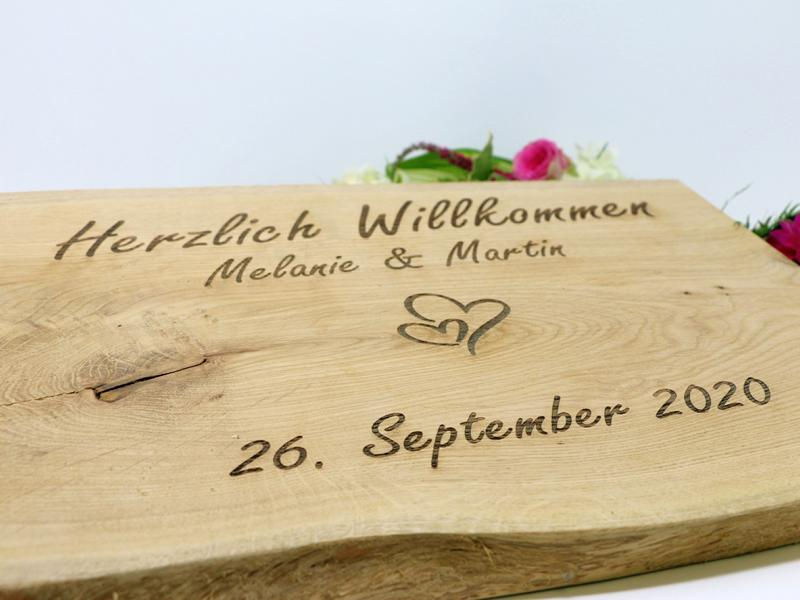 Herzlich Willkommen
Melanie & Martin
26. September 2020